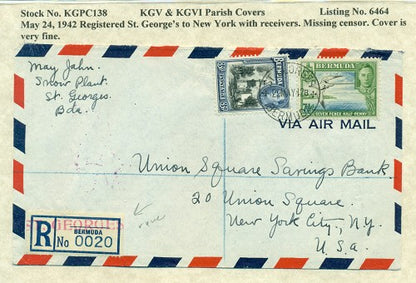 Stock No. KGPC138 KGV & KGVI Parish Covers Listing No. 6464
May 24, 1942 Registered St. George's to New York with receivers. Missing censor. Cover is
very fine.
May Jahn.
Snow Plant.
St. Georges.
Bda.
BERMUDA
SEVEN PENCE HALF PENNY
BERMUDA
VIA AIR MAIL
Union Square Savings Bank.
20 Union Square.
New York City, N.Y.
U.S.a.
ST. GEORGES
R BERMUDA
No 0020